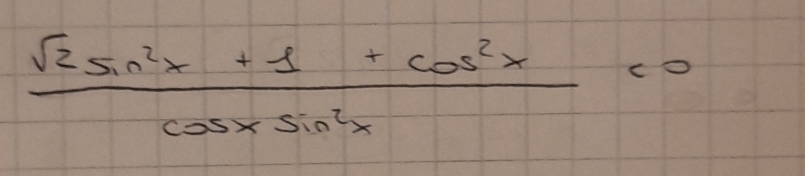 √2 sin²x + 1 + cos²x < 0
cosx sin²x